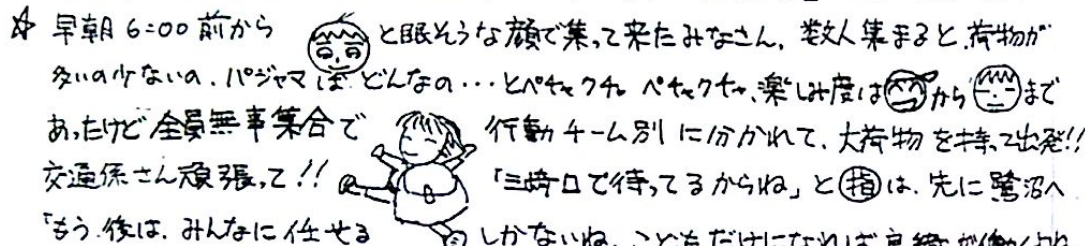 ☆ 早朝 6:00 前から と眠そうな顔で集って来たみなさん、数人集まると、荷物が
多いの少ないの、パジャマは どんなの…とペチャクチャ ペチャクチャ、楽しみ度は から まで
あったけど 全員無事集合で 行動チーム別 に分かれて、大荷物 を持って出発!!
交通係さん頑張って!! 「三崎口で待ってるからね」と 指 は、先に鷺沼へ
「もう、後は、みんなに任せる しかないね、こどもだけになれば